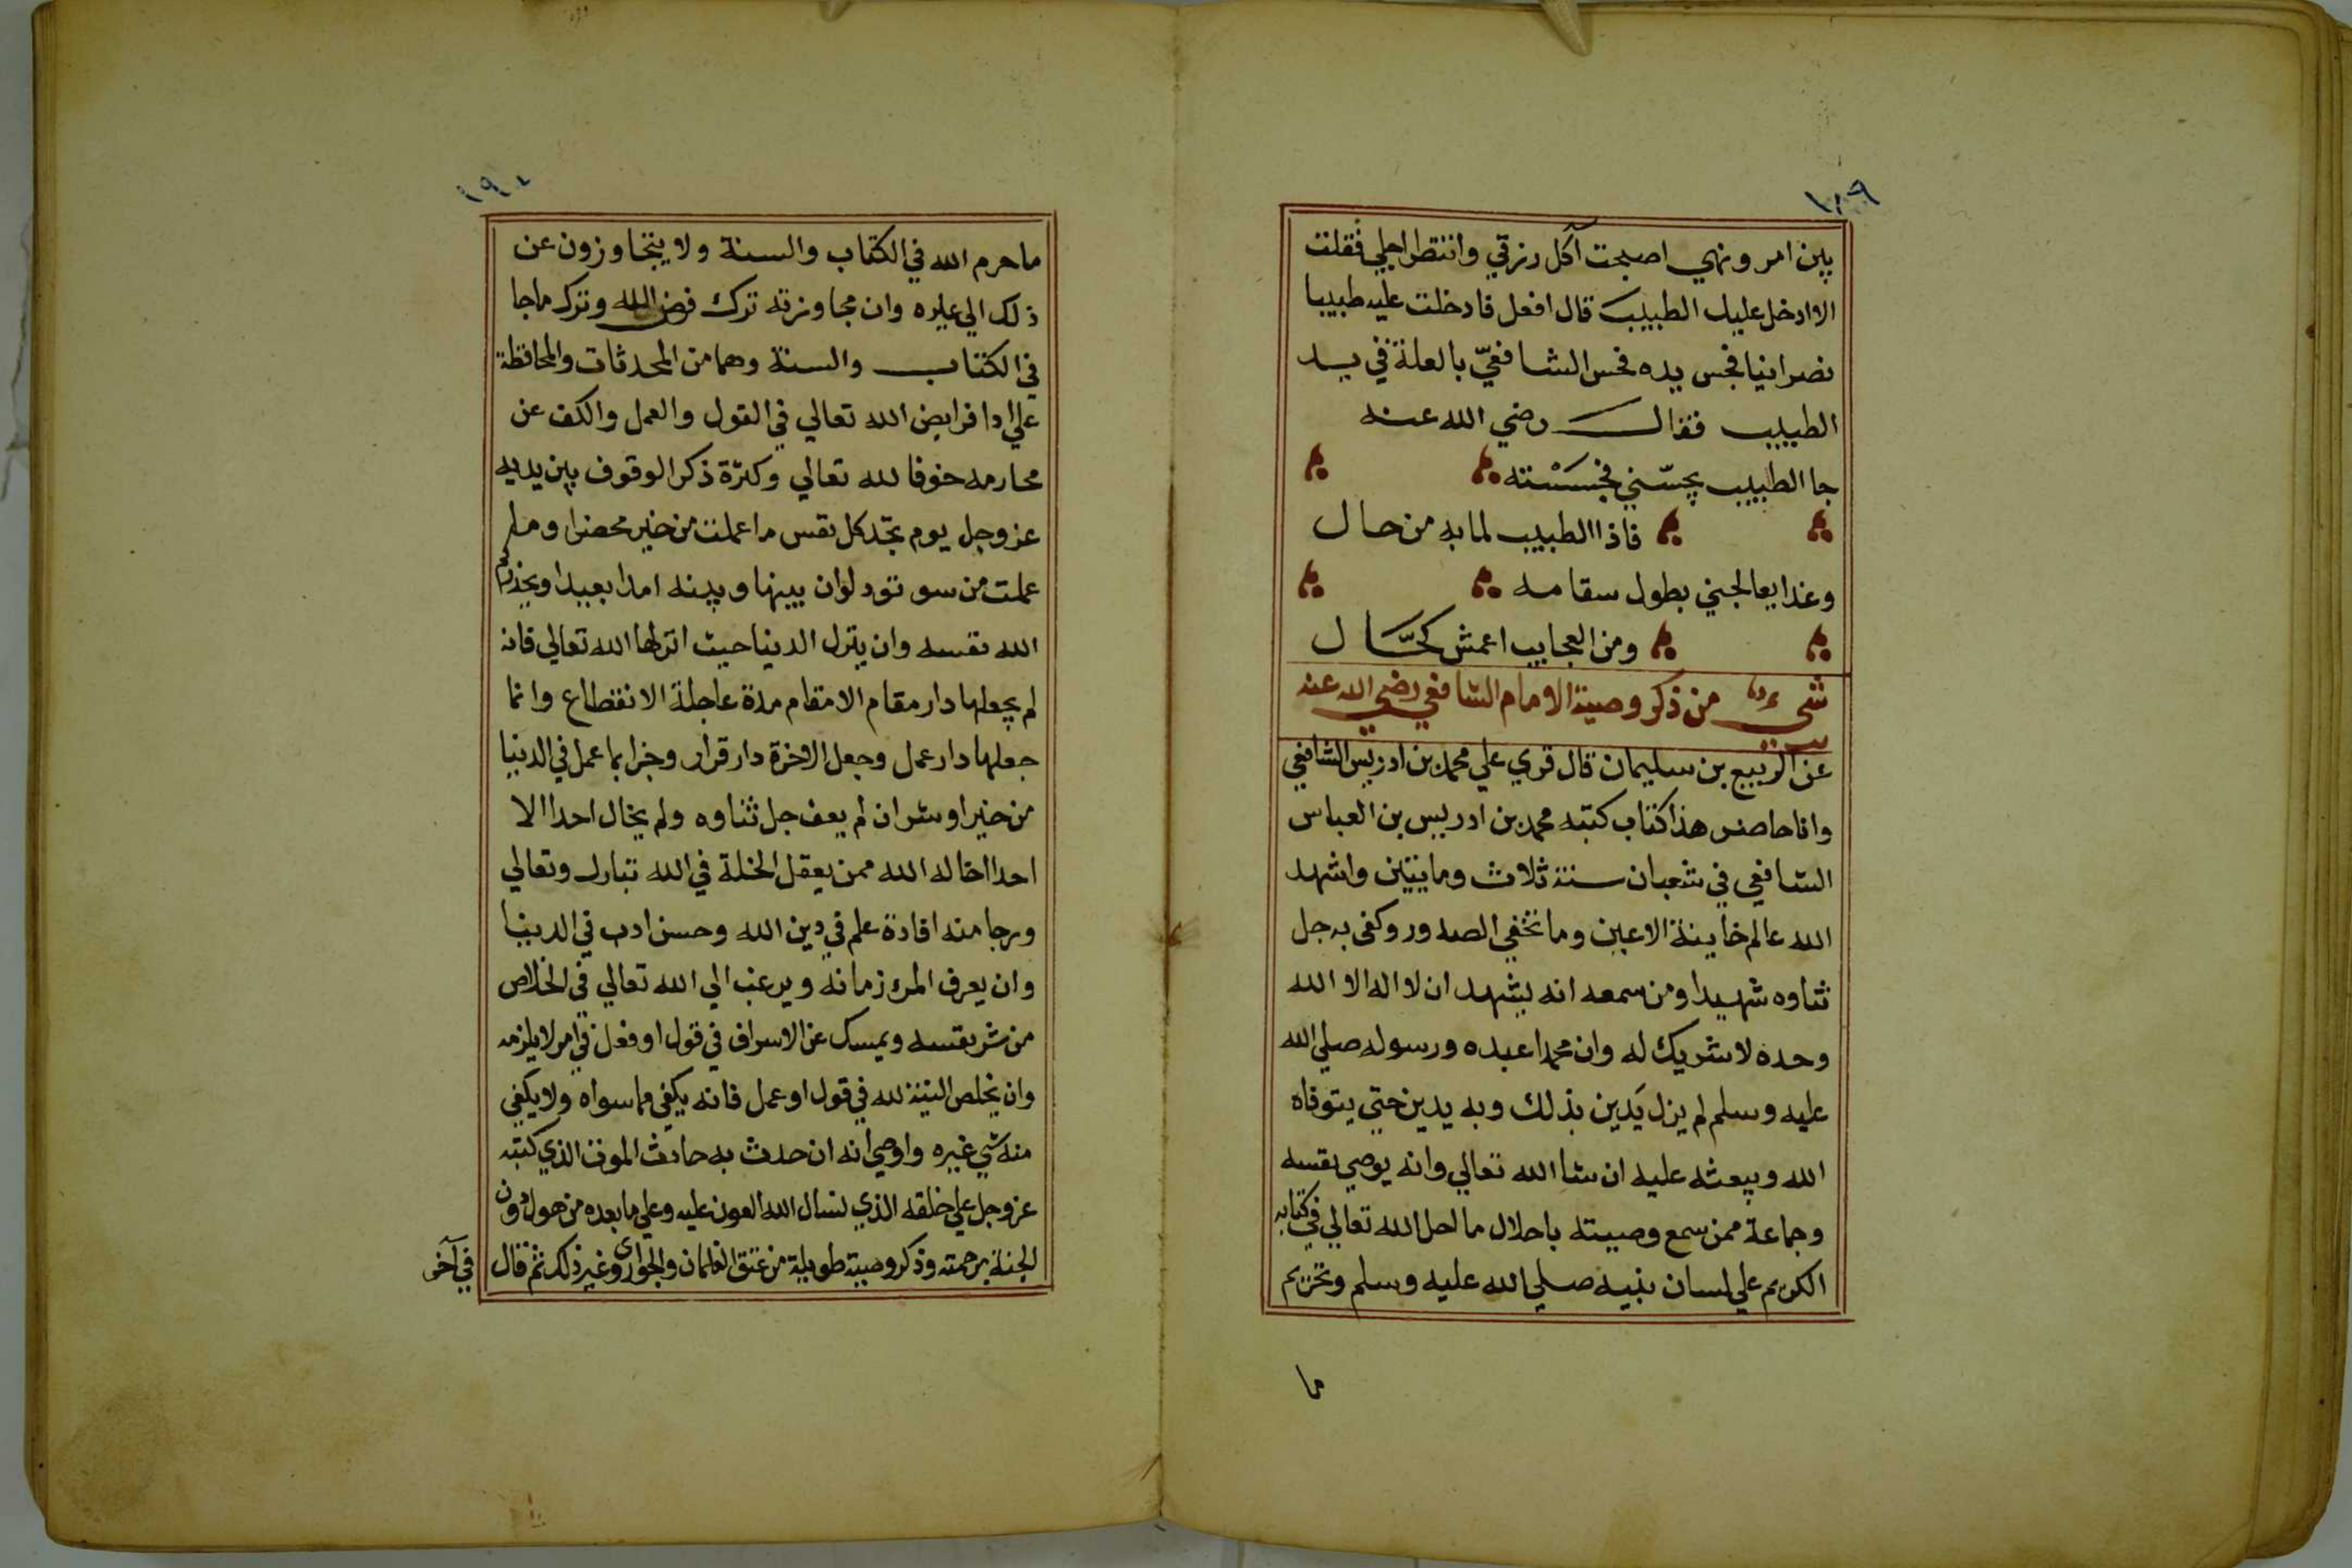 ١٨٩
بين امر ونهي اصبحت آكل رزقي وانتظر اجلي فقلت
الا ادخل عليك الطبيب قال افعل فادخلت عليه طبيبا
نصرانيا فجس يده فحس الشافعيّ بالعلة في يد
الطبيب فقال رضي الله عنه
جا الطبيب يجسّني فجسسْته
فاذا الطبيب لما به من حال
وغدا يعالجني بطول سقامه
ومن العجايب اعمش كحّال
شيء من ذكر وصية الامام الشافعي رضي الله عنه
عن الربيع بن سليمان قال قري علي محمد بن ادريس الشافعي
وانا حاضر هذا كتاب كتبه محمد بن ادريس بن العباس
الشافعي في شعبان سنة ثلاث وماىتين واشهد
الله عالم خاينة الاعين وما تخفي الصدور وكفى به جل
ثناوه شهيدا ومن سمعه انه يشهد ان لا اله الا الله
وحده لا شريك له وان محمدا عبده ورسوله صلي الله
عليه وسلم لم يزل يَدين بذلك وبه يدين حتي يتوفاه
الله ويبعثه عليه ان شا الله تعالي وانه يوصي نفسه
وجماعة ممن سمع وصيته باحلال ما احل الله تعالي في كتابه
الكريم علي لسان نبيه صلي الله عليه وسلم وتحريم
ما
١٩٠
ما حرم الله في الكتاب والسنة ولا يتجاوزون عن
ذلك الي غيره وان مجاوزته ترك فرض الله وترك ما جا
في الكتاب والسنة وهما من المحدثات والمحافظة
علي ادا فرايض الله تعالي في القول والعمل والكف عن
محارمه خوفا لله تعالي وكثرة ذكر الوقوف بين يديه
عز وجل يوم تجد كل نفس ما عملت من خير محضرا وما
عملت من سو تود لو ان بينها وبينه امدا بعيدا ويحذركم
الله نفسه وان ينزل الدنيا حيث انزلها الله تعالي فانه
لم يجعلها دار مقام الا مقام مدة عاجلة الانقطاع وانما
جعلها دار عمل وجعل الاخرة دار قرار وجزا بما عمل في الدنيا
من خير او شر ان لم يعف جل ثناوه ولم يخال احدا الا
احدا خاله الله ممن يعقل الخلة في الله تبارك وتعالي
ورجا منه افادة علم في دين الله وحسن ادب في الدنيا
وان يعرف المرء زمانه ويرغب الي الله تعالي في الخلاص
من شر نفسه ويمسك عن الاسراف في قول او فعل في امر لا يلزمه
وان يخلص النية لله في قول او عمل فانه يكفي مما سواه ولا يكفي
منه شي غيره واوصي انه ان حدث به حادث الموت الذي كتبه
عز وجل علي خلقه الذي نسال الله العون عليه وعلي ما بعده من هول دون
الجنة برحمته وذكر وصية طويلة من عتق الغلمان والجواري وغير ذلك ثم قال
في آخر